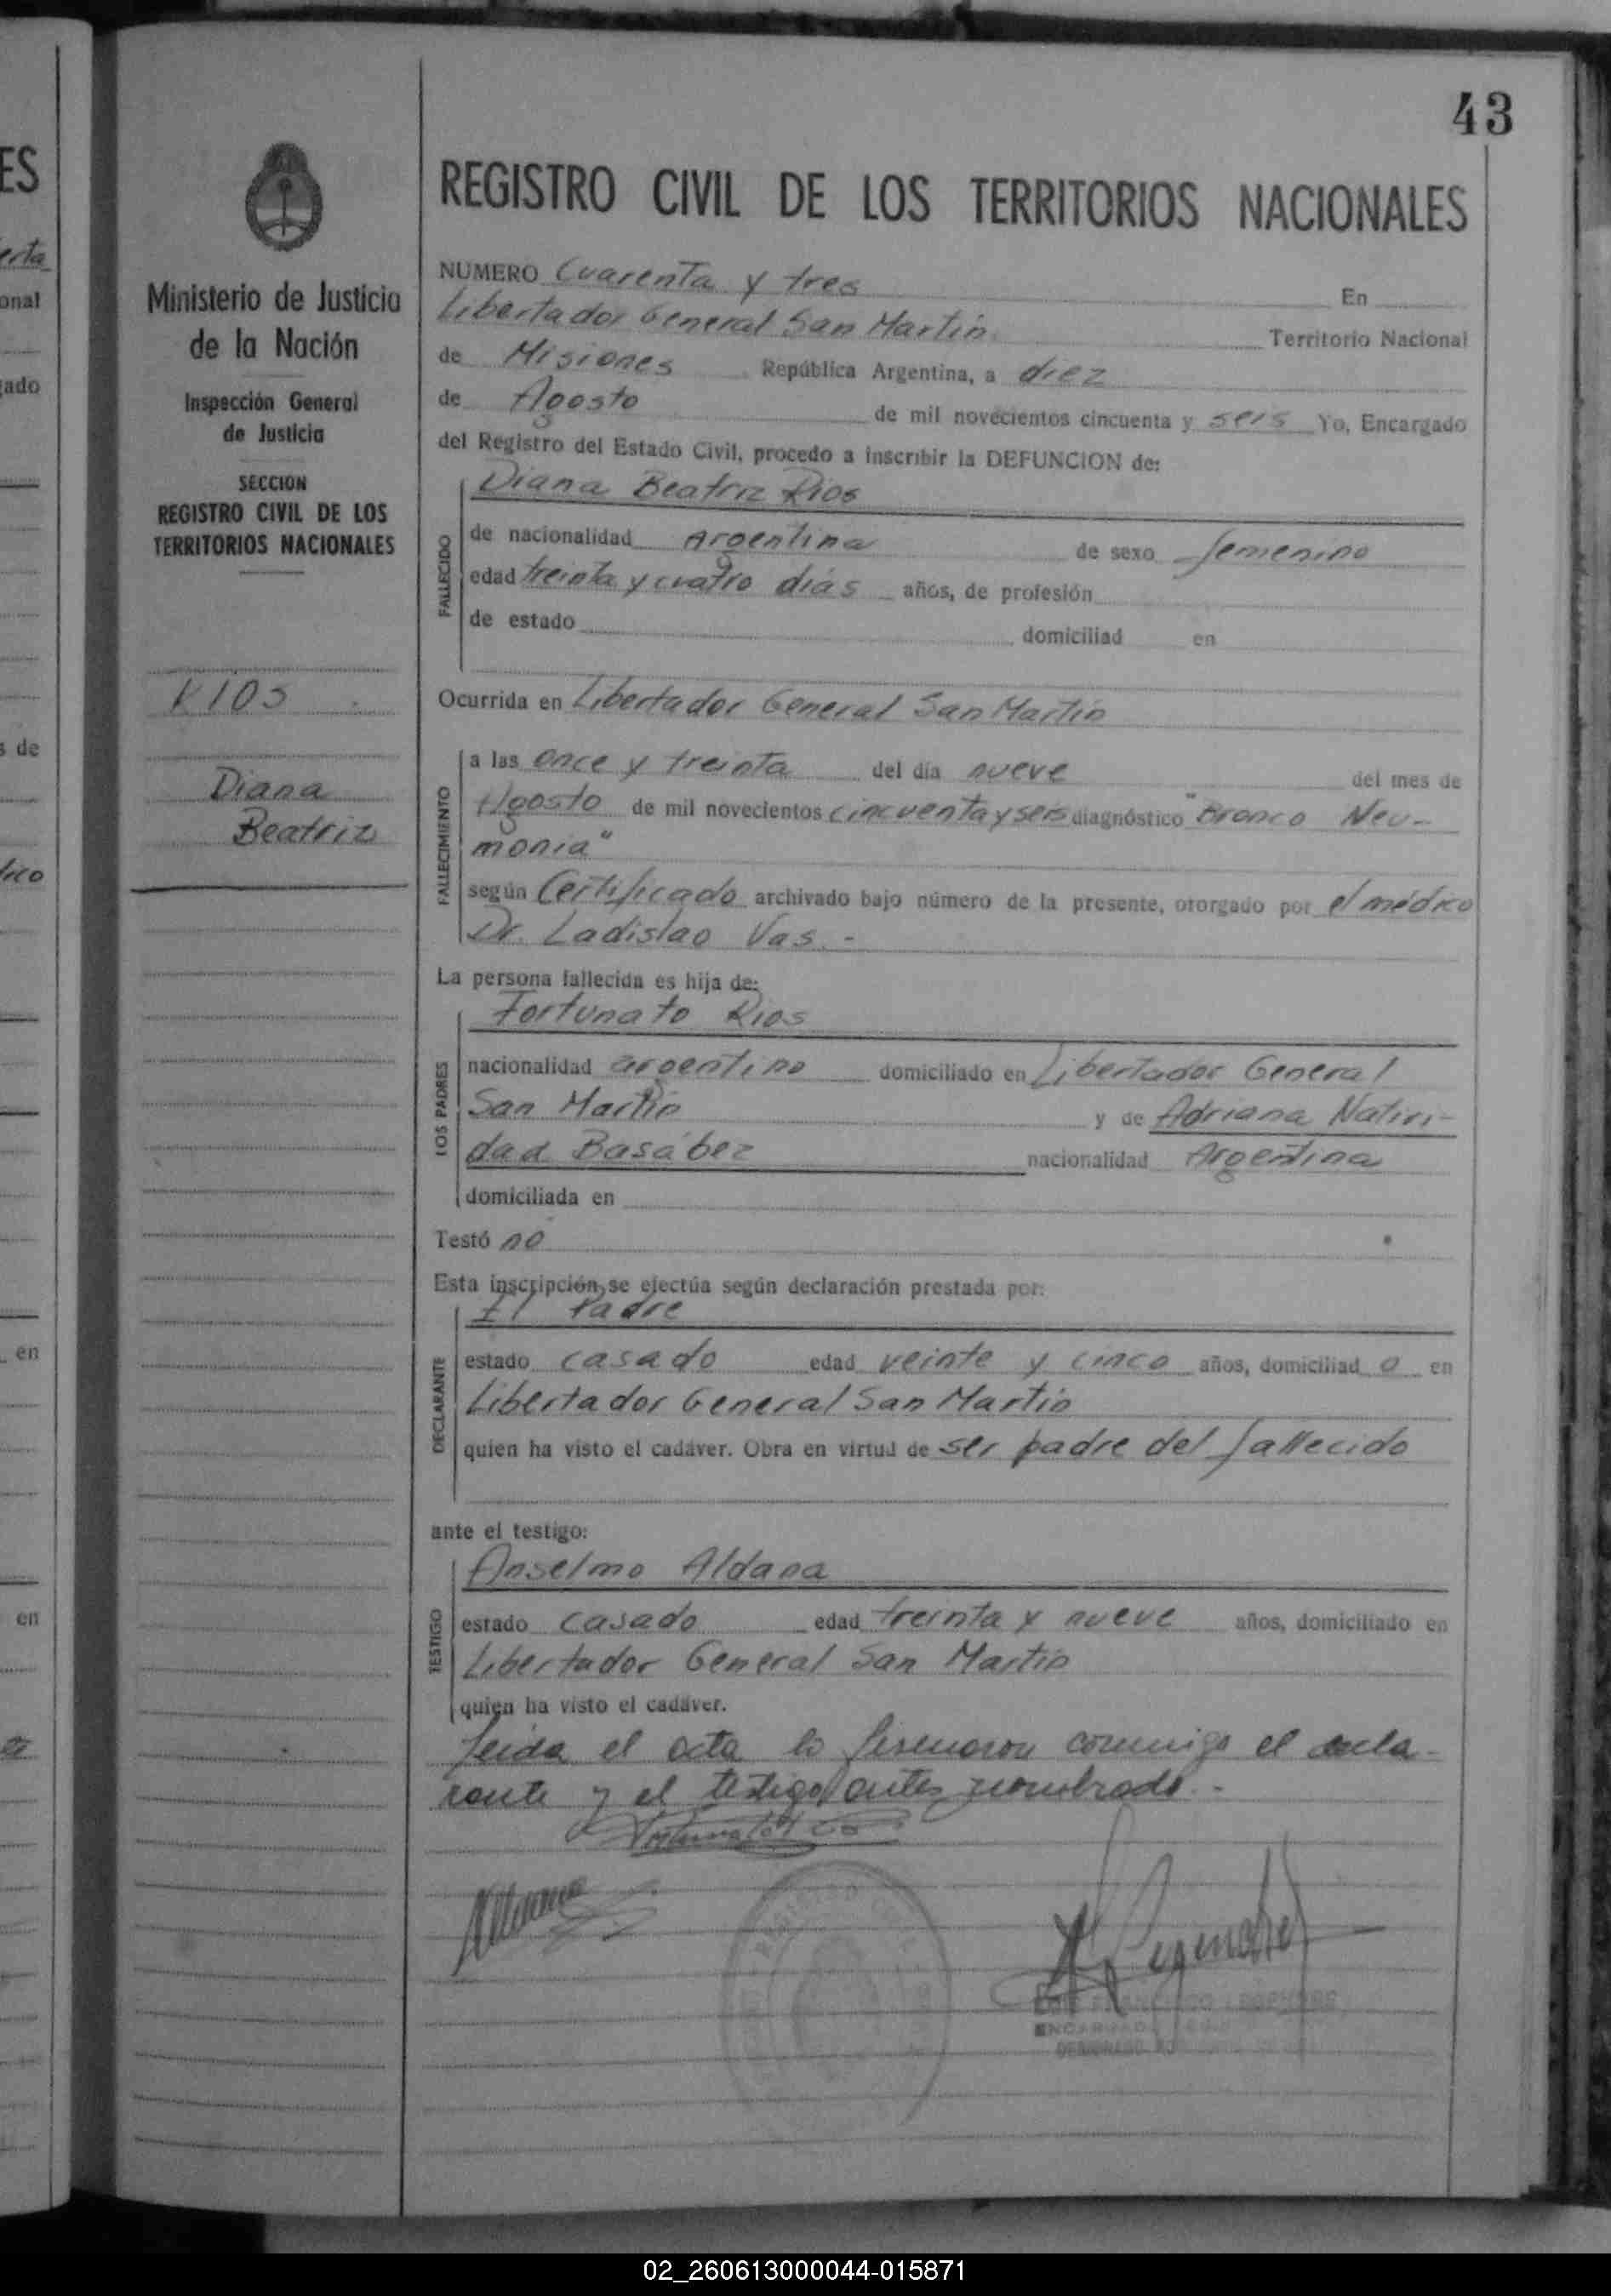 43
ES
erta
onal
gado
s de
rico
en
en
Ministerio de Justicia
de la Nación
Inspección General
de Justicia
SECCION
REGISTRO CIVIL DE LOS
TERRITORIOS NACIONALES
RIOS
Diana
Beatriz
REGISTRO CIVIL DE LOS TERRITORIOS NACIONALES
NUMERO Cuarenta y tres En
Libertador General San Martín. Territorio Nacional
de Misiones República Argentina, a diez
de Agosto de mil novecientos cincuenta y seis Yo, Encargado
del Registro del Estado Civil, procedo a inscribir la DEFUNCION de:
Diana Beatriz Rios
FALLECIDO
de nacionalidad Argentina de sexo femenino
edad treinta y cuatro dias años, de profesión
de estado domiciliad en
Ocurrida en Libertador General San Martin
FALLECIMIENTO
a las once y treinta del día nueve del mes de
Agosto de mil novecientos cincuenta y seis diagnóstico "Bronco Neu-
monia"
según Certificado archivado bajo número de la presente, otorgado por el médico
Dr. Ladislao Vas.-
La persona fallecida es hija de:
Fortunato Rios
LOS PADRES
nacionalidad argentino domiciliado en Libertador General
San Martin y de Adriana Nativi-
dad Basábez nacionalidad Argentina
domiciliada en
Testó no
Esta inscripción, se efectúa según declaración prestada por:
El Padre
DECLARANTE
estado casado edad veinte y cinco años, domiciliad o en
Libertador General San Martin
quien ha visto el cadáver. Obra en virtud de ser padre del fallecido
ante el testigo:
Anselmo Aldana
TESTIGO
estado casado edad treinta y nueve años, domiciliado en
Libertador General San Martin
quien ha visto el cadáver.
Leida el acta la firmaron conmigo el decla-
rante y el testigo antes nombrado.-
02_260613000044-015871